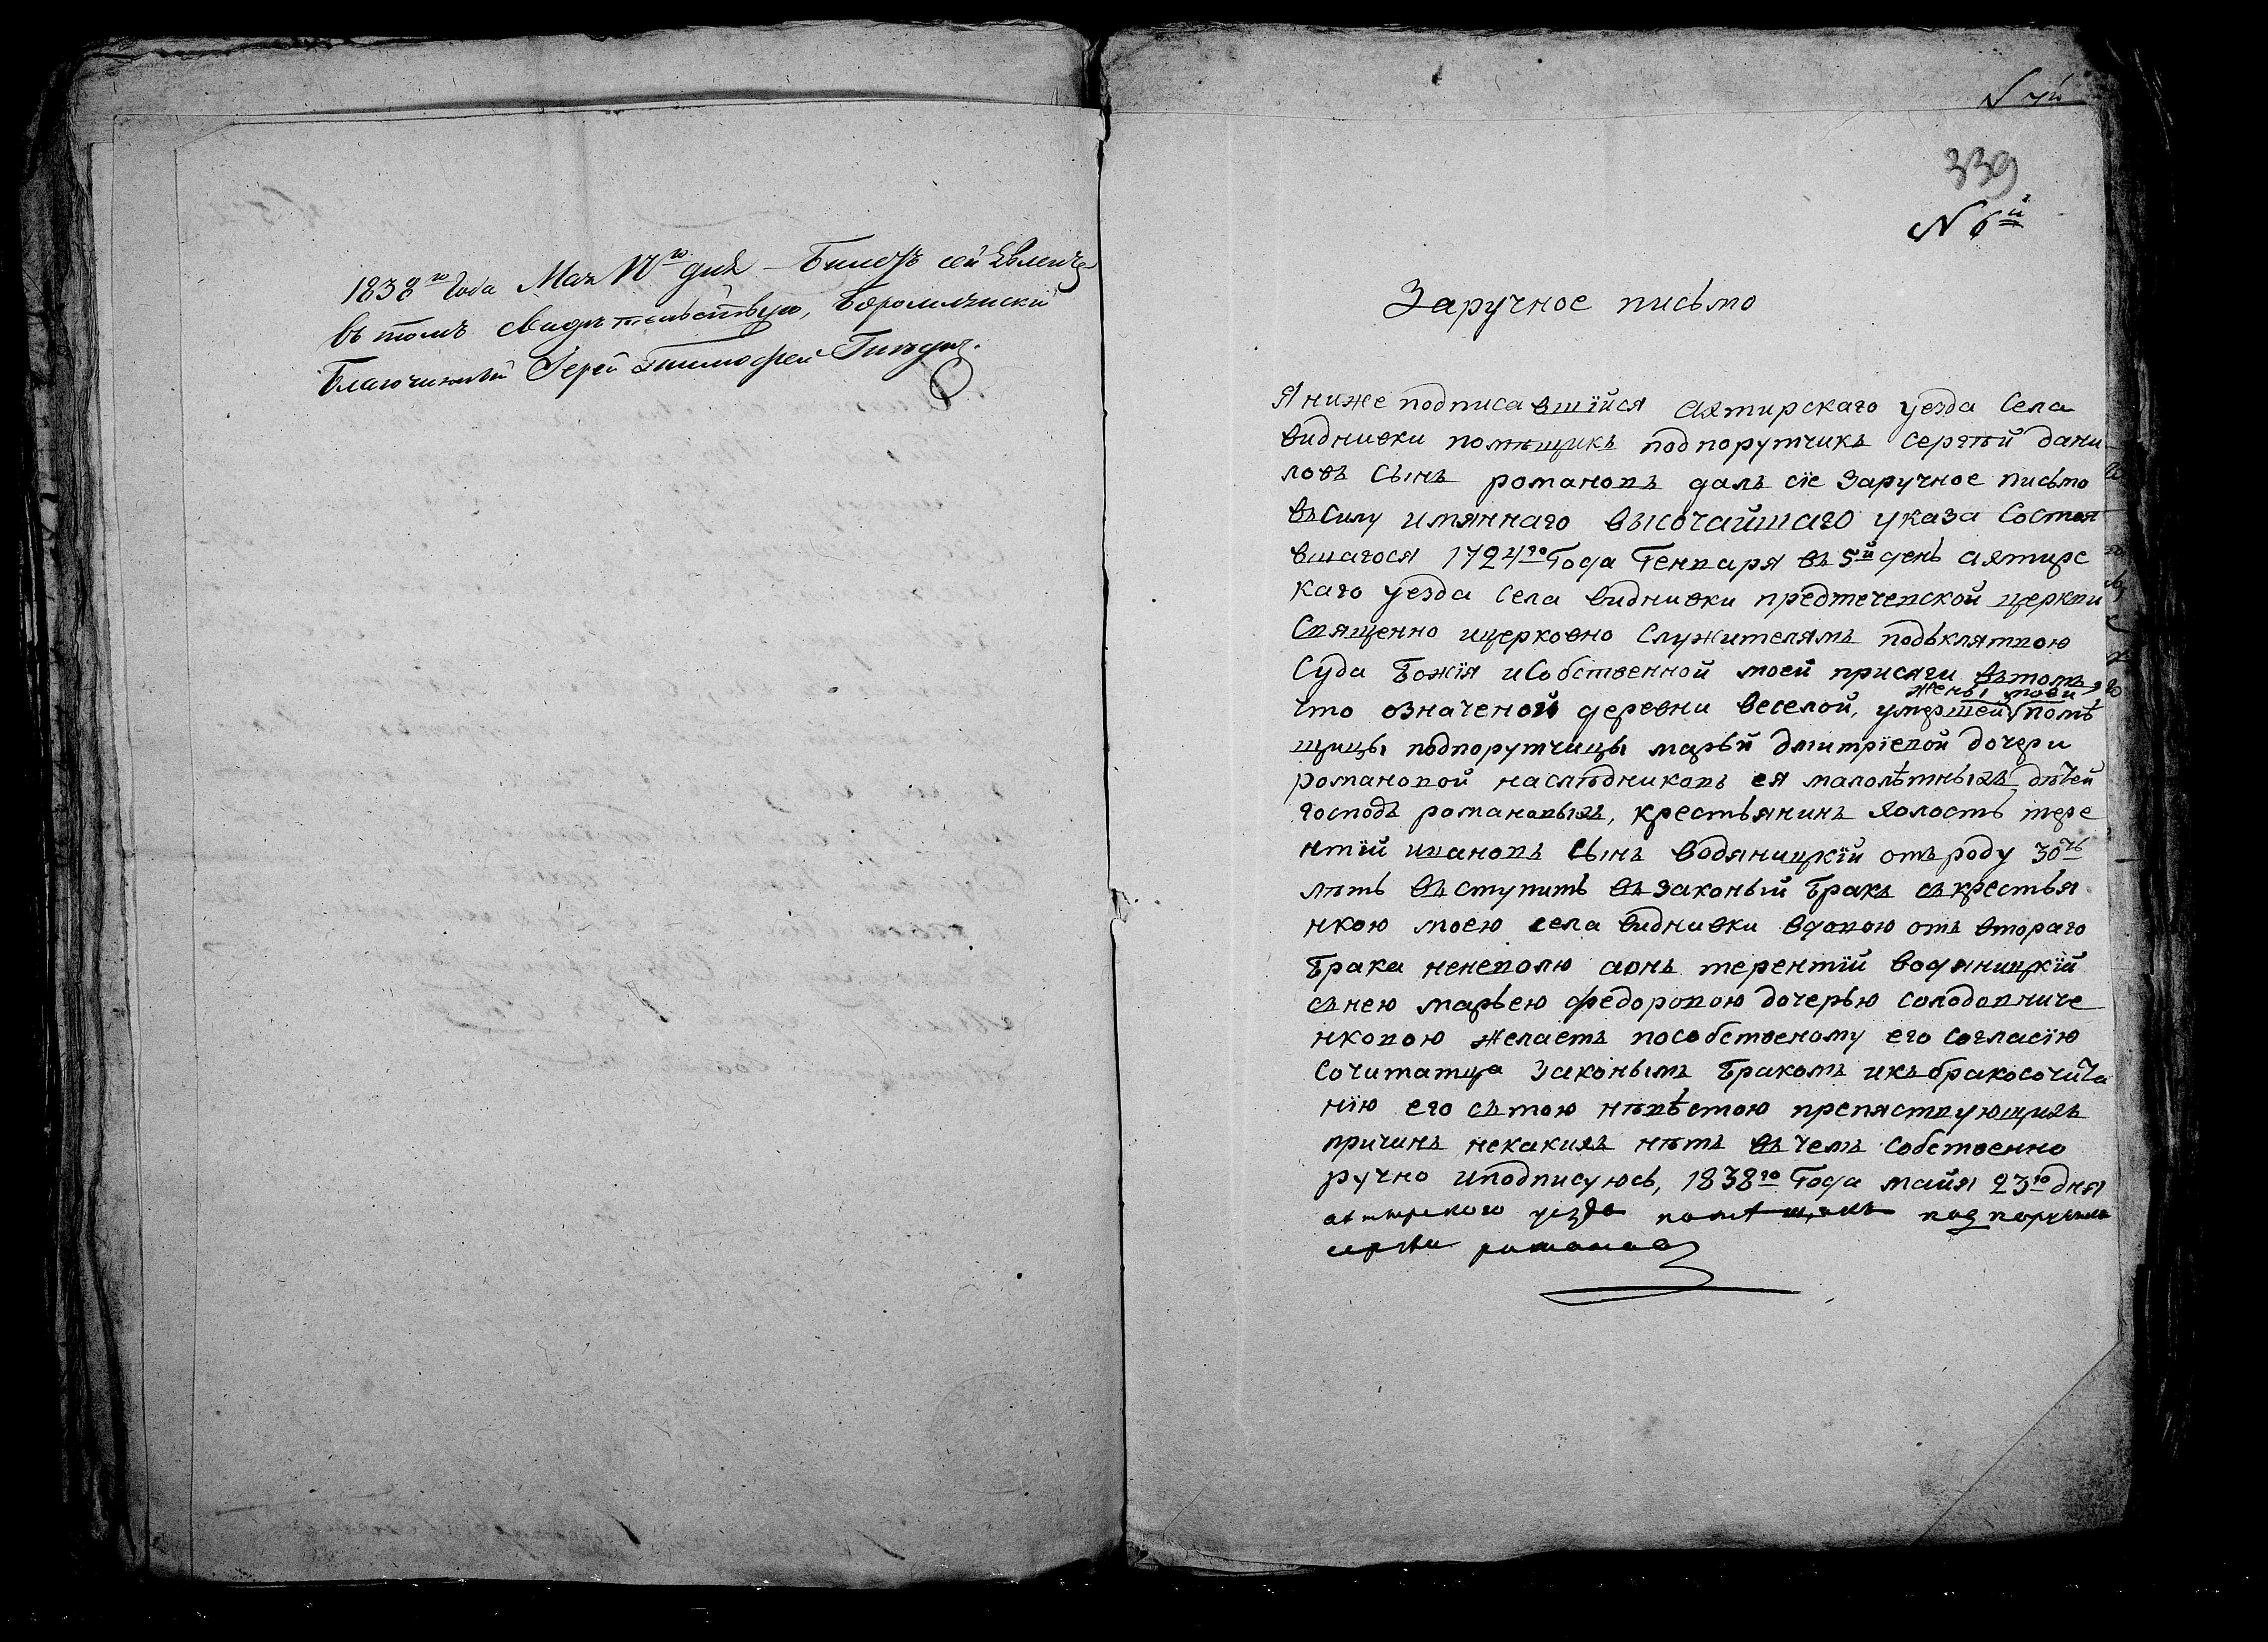 1838го Года Мая дня Билетъ сей Явленъ
въ томъ свидѣтельствую, Боромлянский
Благочинный Іерей Тимофей
339
N 6й
Заручное письмо
Я ниже подписавшїйся ахтирскаго уезда Села
виднивки помѣщикъ подпорутчикъ сергѣй дани
ловъ Сынъ романовъ далъ сїе Заручное письмо
въ Силу имяннаго высочайшаго указа Состоя
вшагося 1724го Года Генваря въ 5й день ахтирс
каго уезда Села виднивки предтечевской церкви
Священно ицерковно Служителямъ подъклятвою
Суда Божїя иСобственной моей присяги въ томъ
жены моей
что означеной деревни веселой, умершей √ помѣ
щицы подпорутчицы марьи дмитрїевой дочери
романовой наслѣдниковъ ея малолѣтныхъ дѣтей
господъ романовыхъ, крестьянинъ холостъ тере
нтїй ивановъ Сынъ водяницкїй отъ роду 30ть
лѣтъ въ ступитъ въ законый бракъ съ крестья
нкою моею села виднивки вдовою отъ втораго
брака неневолю аонъ терентїй водяницкїй
съ нею марьею федоровою дочерью солодовниче
нковою желаетъ пособственому его согласїю
Сочитатца Законымъ бракомъ икъ бракосочита
нїю его сътою нѣвѣстою препяствующихъ
причинъ некакихъ нѣтъ въ чемъ Собственно
ручно иподписуюсь, 1838го Года майя 23го дня
ахтырского уезда помѣщикъ подпорутчикъ
сергѣи романовъ